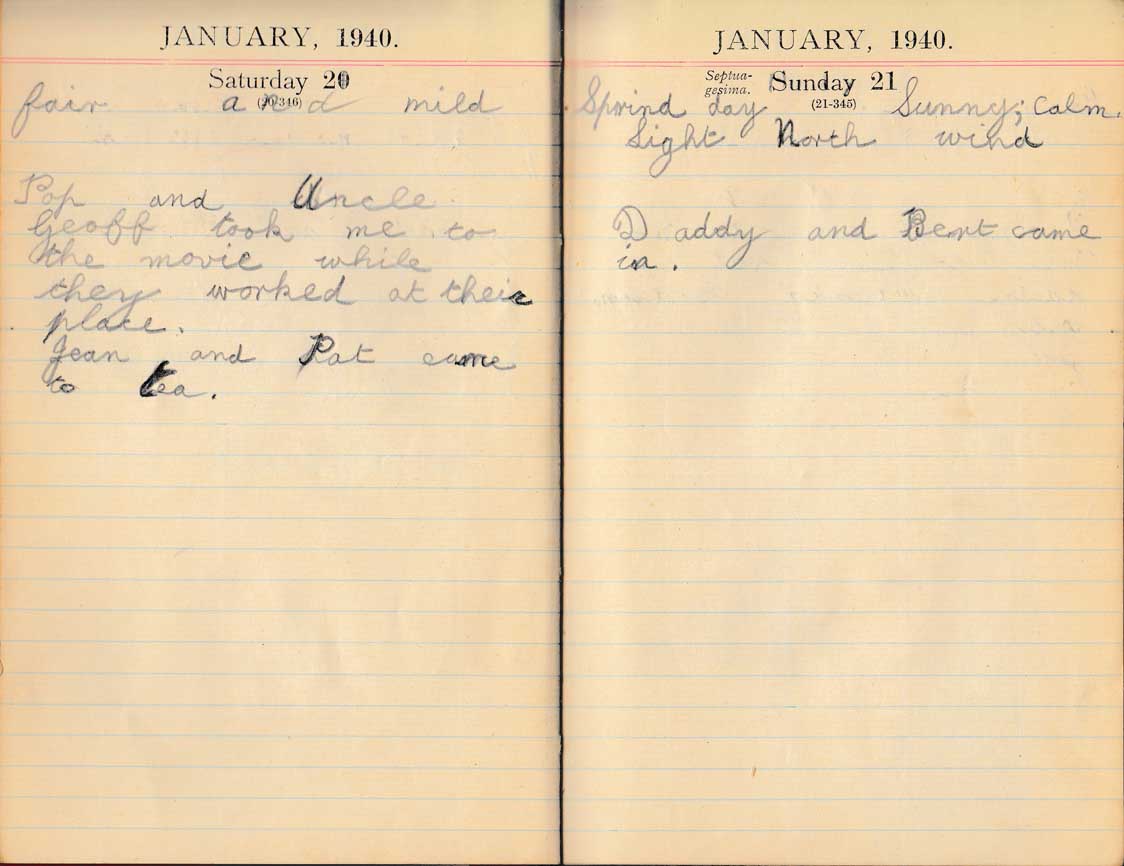 JANUARY, 1940.
Saturday 20
(20-346)
fair and mild
Pop and Uncle
Geoff took me to
the movie while
they worked at their
place.
Jean and Pat came
to tea.
JANUARY, 1940.
Septua-
gesima.
Sunday 21
(21-345)
Sprind day Sunny; Calm.
Light North wind
Daddy and Bent came
in.